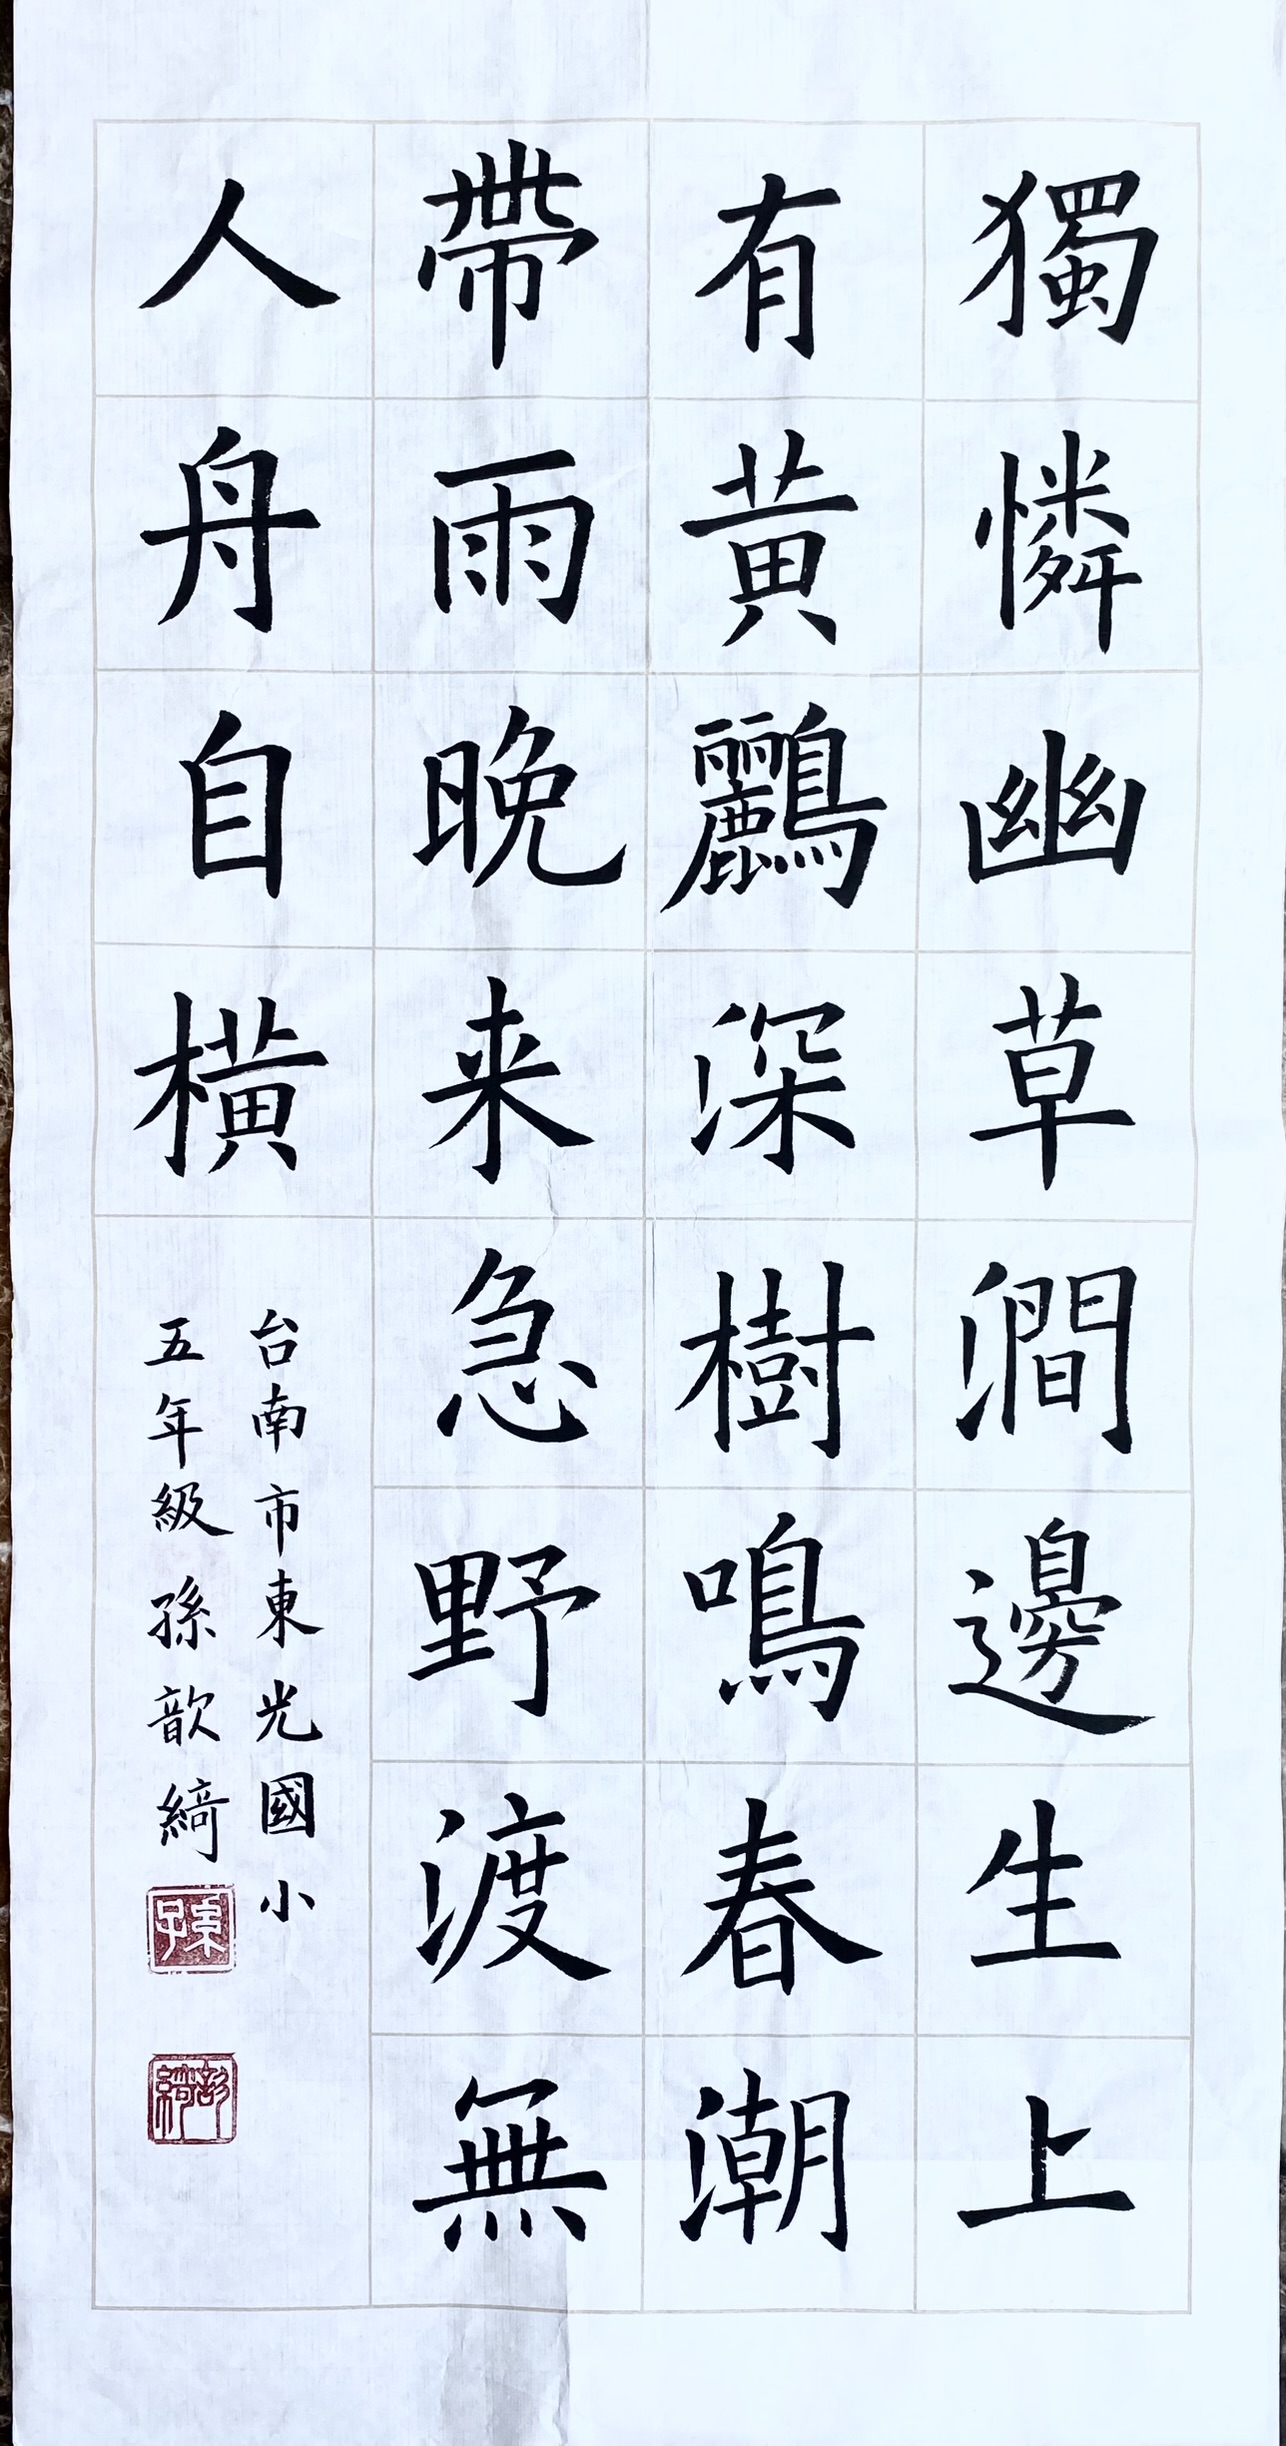 獨憐幽草澗邊生上
有黃鸝深樹鳴春潮
帶雨晚来急野渡無
人舟自橫
台南市東光國小
五年級 孫歆綺
孫
歆綺